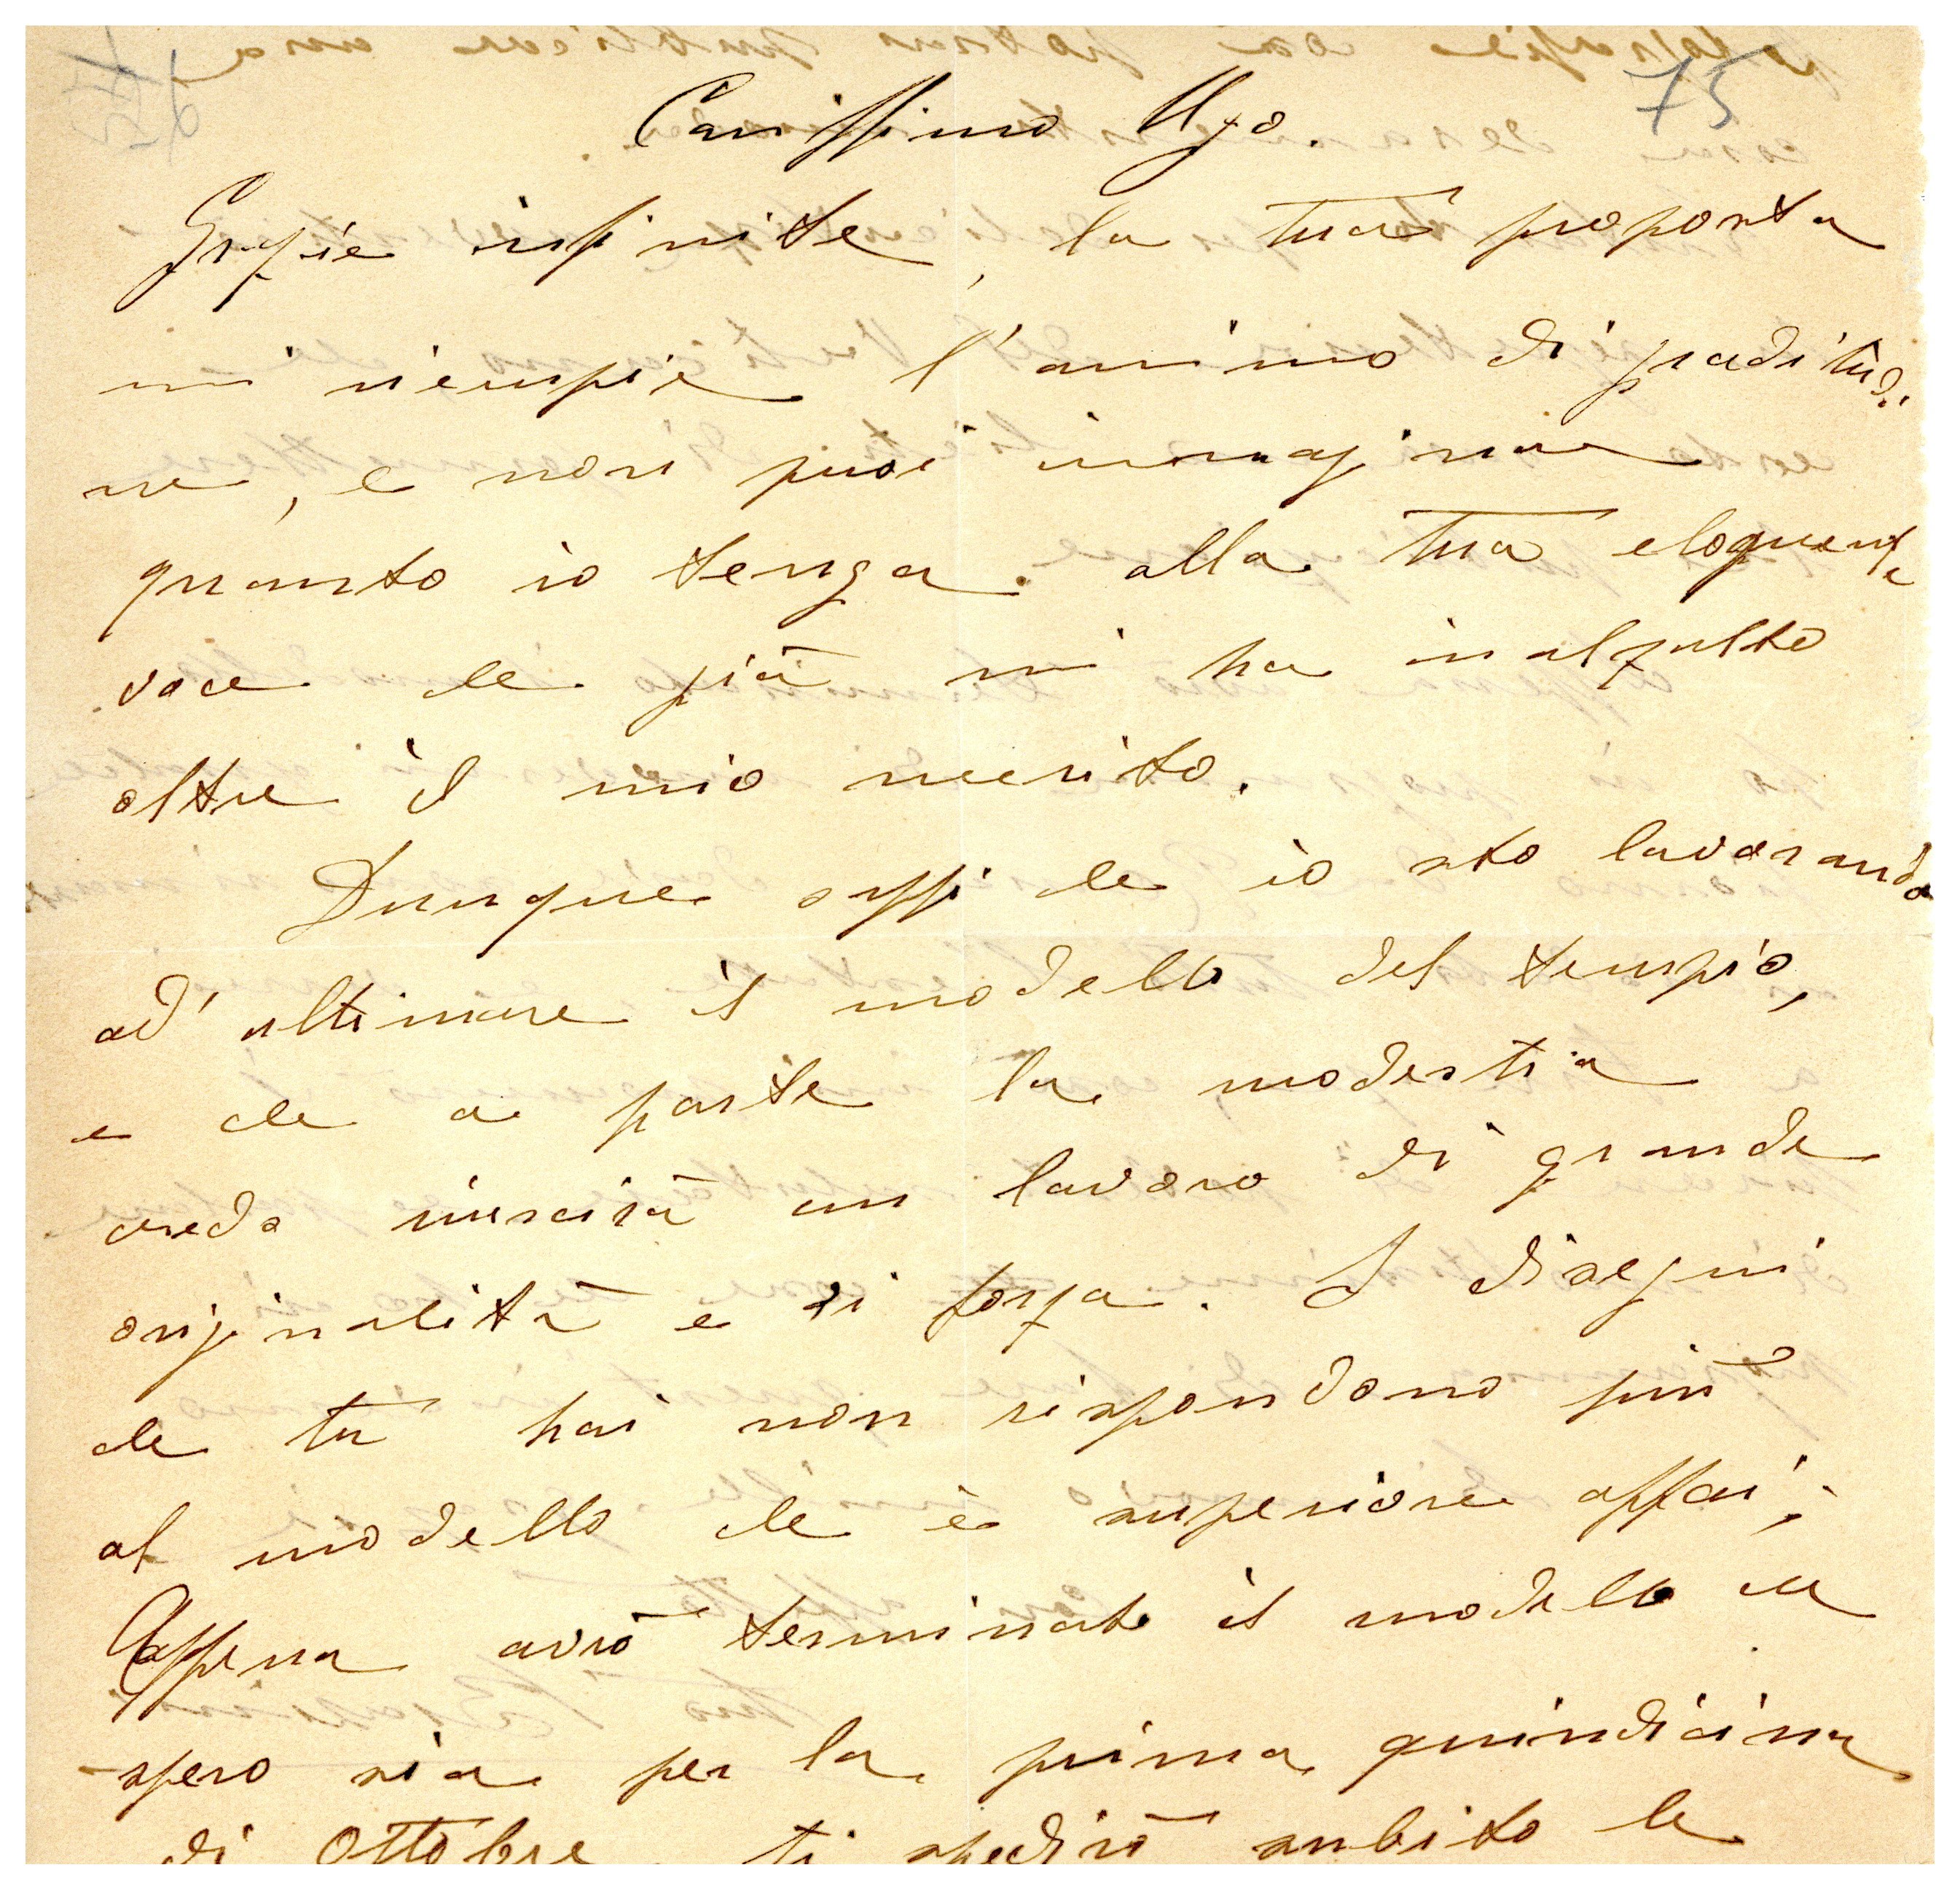 75
Carissimo Ugo.
Grazie infinite, la tua proposta
mi riempie l'animo di graditudi
ne, e non puoi immaginare
quanto io tenga alla tua eloquente
voce che già mi ha inalzalto
oltre il mio merito.
Dunque sappi che io sto lavorando
ad' ultimare il modello del tempio,
e che a parte la modestia
credo riuscirà un lavoro di grande
originalità e di forza. I disegni
che tu hai non rispondono più
al modello che è superiore assai;
Appena avrò terminato il modello e
spero sia per la prima quindicina
di Ottobre ti spedirò subito le